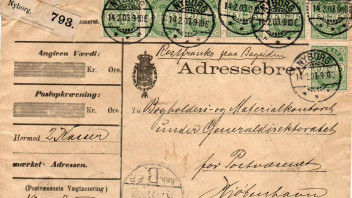 Nyborg.
793.
numeret.
NYBORG
14.2.03.9-10 E.
Postfranko paa Bagsiden
Angiven Værdi:
Kr. Øre.
Adressebrev
Postopkrævning:
Kr. Øre.
Til Bogholderi- og Materialkontoret
under Generaldirektoratet
Hermed 2 Kasser
for Postvæsenet
mærket- Adressen.
(Postvæsenets Vægtangivelse)
Kjøbenhavn